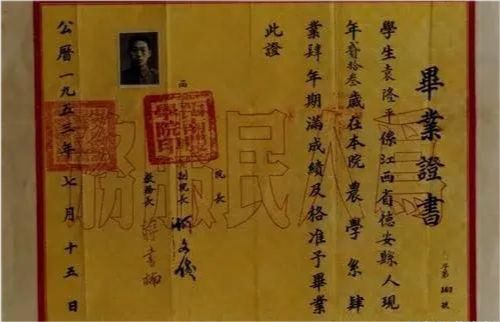 畢業證書
字第
號
學生袁隆平係江西省德安縣人現
年貳拾叁歲在本院農學系肆
業肆年期滿成績及格准予畢業
此證
院長
副院長
教務長
西南農學院印
公曆一九五三年七月十五日
爲人民服務